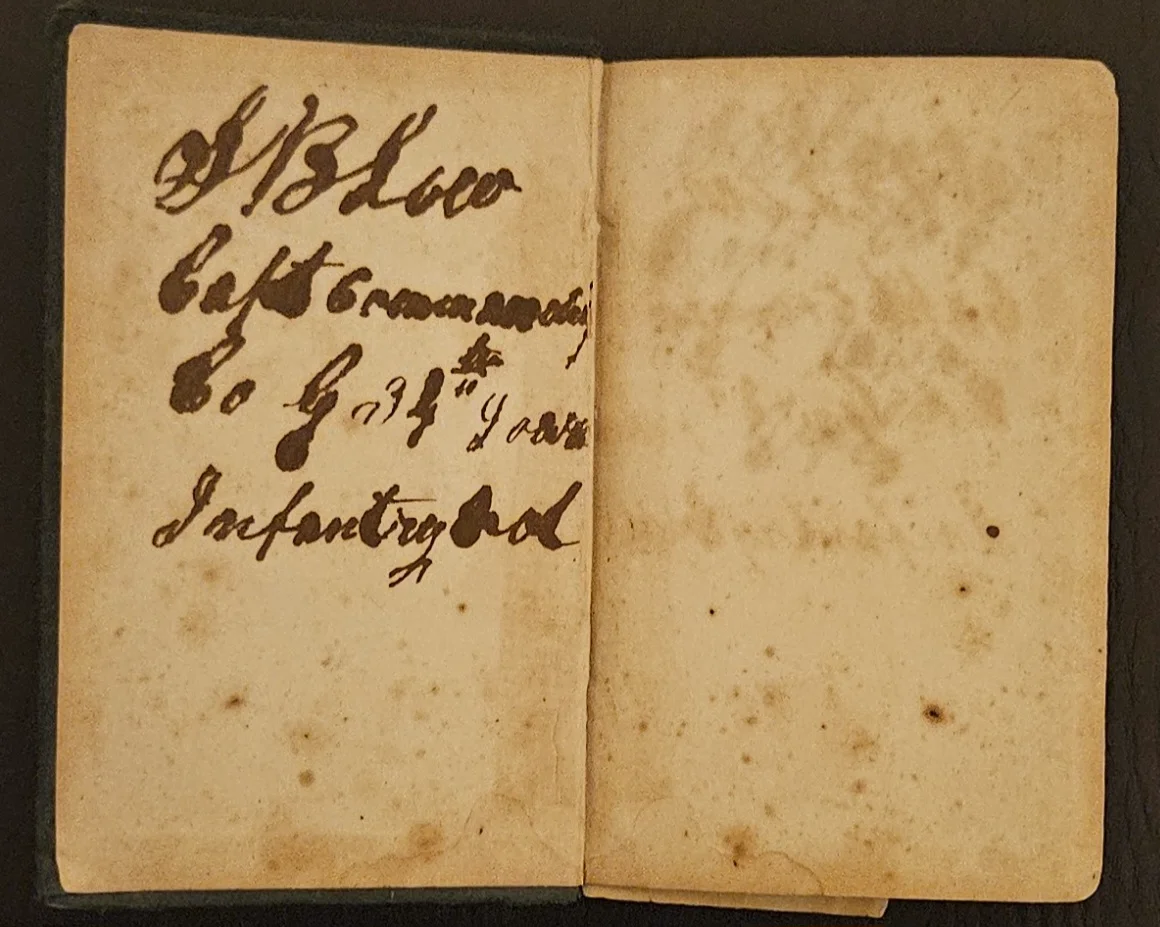 J B Loco
Capt Commandig
Co G 34th Iowa
Infantry Vol